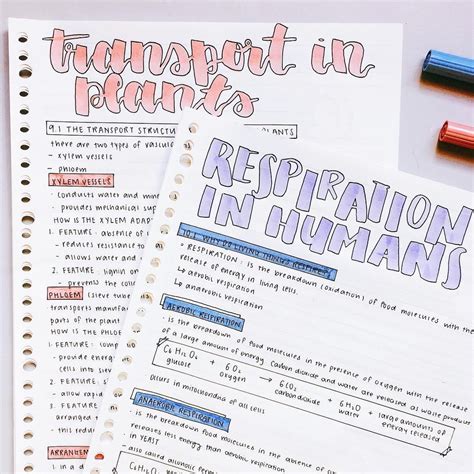 transport in
plants
9.1 THE TRANSPORT STRUCTU PLANTS
there are two types of vascul
- xylem vessels
- phloem
XYLEM VESSELS
- conducts water and mine
- provides mechanical sup
HOW IS THE XYLEM ADAP
1. FEATURE: absence of
- reduces resistance to
- allows water and
2. FEATURE: lignin on
- prevents the co
PHLOEM (sieve tube
transports manufa
parts of the plant
HOW IS THE PHLOE
1. FEATURE: compa
- provide energ
cells into siev
2. FEATURE:
- allow rapid
3. FEATURE:
arranged
this r
ARRANGEM
1. in a d
RESPIRATION
IN HUMANS
10.1 WHY DO LIVING THINGS RESPIRE?
- RESPIRATION: is the breakdown (oxidation) of food molecules with the
release of energy in living cells.
↳ aerobic respiration
↳ anaerobic respiration
AEROBIC RESPIRATION
- is the breakdown of food molecules in the presence of oxygen with the release
of a large amount of energy. Carbon dioxide and water are released as waste produc
C₆H₁₂O₆ + 6O₂ → 6CO₂ + 6H₂O + large amounts of
glucose oxygen carbon dioxide water energy released
Occurs in mitochondria of all cells
ANAEROBIC RESPIRATION
- is the breakdown of food molecules in the absence of
releases less energy than aerobic respiration.
- in YEAST
- also called alcoholic